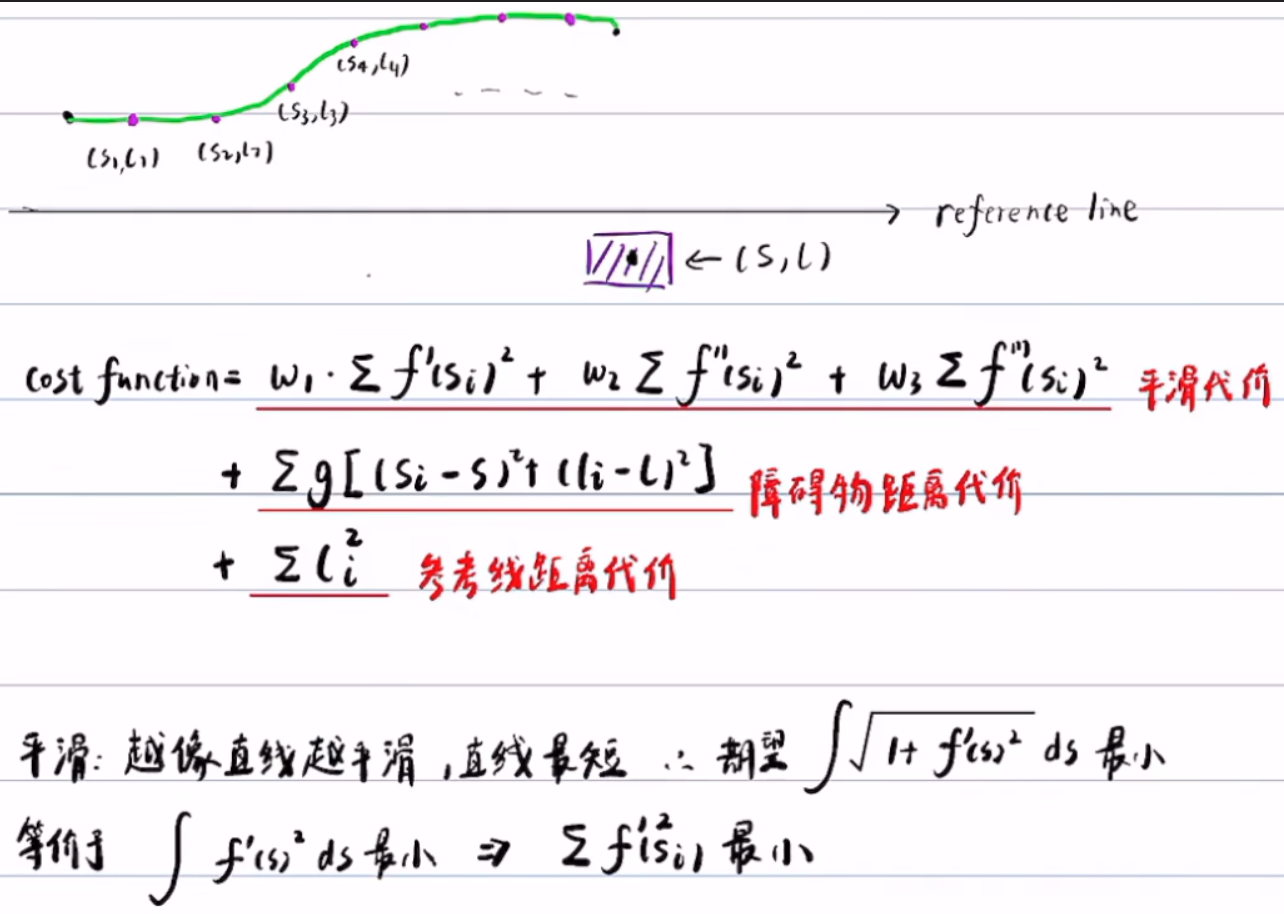 (s₁,l₁) (s₂,l₂) (s₃,l₃) (s₄,l₄)
reference line
← (s,l)
cost function = w₁·Σf'(sᵢ)² + w₂Σf''(sᵢ)² + w₃Σf'''(sᵢ)² 平滑代价
+ Σg[(sᵢ-s)²+(lᵢ-l)²] 障碍物距离代价
+ Σlᵢ² 参考线距离代价
平滑: 越像直线越平滑,直线最短 ∴ 期望 ∫√(1+f'(s)²) ds 最小
等价于 ∫f'(s)² ds 最小 ⇒ Σf'²(sᵢ) 最小